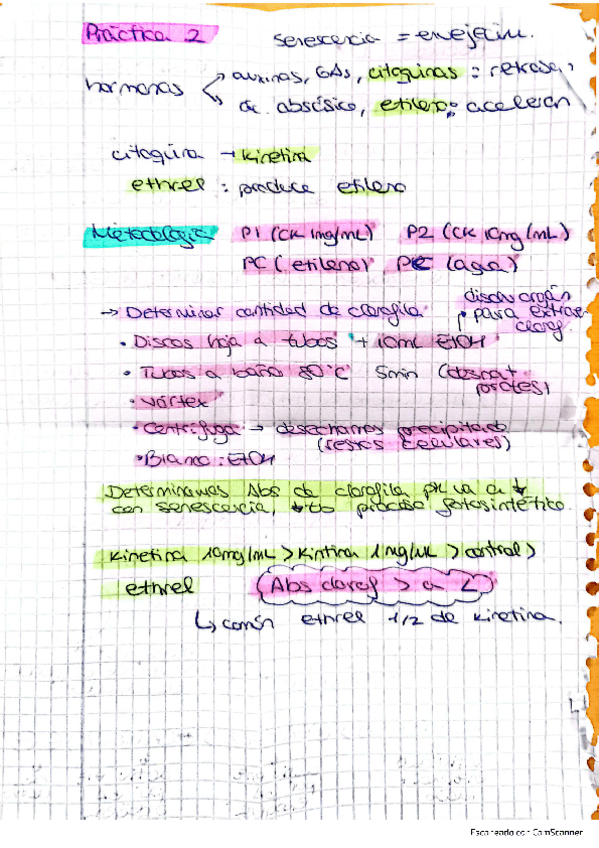 Práctica 2 senescencia = envejecim.
hormonas auxinas, GAs, citoquinas : retrasan
ac. abscísico, etileno : aceleran
citoquina → kinetina
ethrel : produce etileno
Metodología P1 (CK 1mg/mL) P2 (CK 10mg/mL)
PC (etileno) PC (agua)
→ Determinar cantidad de clorofila
disolv orgán
para extraer
clorof
• Discos hoja a tubos + 10mL EtOH
• Tubos a baño 80°C 5min (desnat
protes)
• Vórtex
• Centrífuga → desechamos precipitado
(restos celulares)
• Blanco: EtOH
Determinamos Abs de clorofila pk va a ↓
con senescencia, ↓ to proceso fotosintético.
Kinetina 10mg/mL > Kintina 1mg/mL > control >
ethrel (Abs clorof > a <)
↳ común ethrel 1/2 de kinetina.
Escaneado con CamScanner